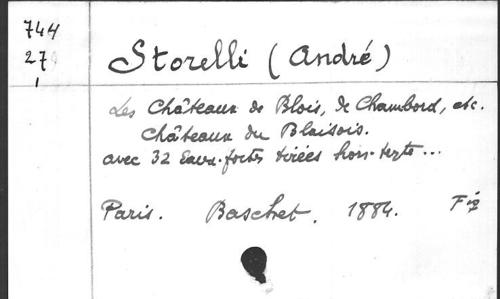 744
27
1
Storelli (André)
Les Châteaux de Blois, de Chambord, etc.
Châteaux du Blaisois.
avec 32 Eaux-fortes tirées hors-texte...
Paris. Baschet. 1884. Fig